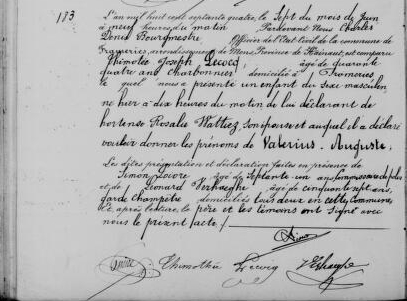 183
L'an mil huit cent septante quatre, le Sept du mois de Juin
à neuf heures du matin Pardevant Nous Charles
Denis Bourgmestre Officier de l'état civil de la commune de
Frameries, arrondissement de Mons Province de Hainaut, est comparu
Thimotée Joseph Lecocq âgé de quarante
quatre ans charbonnier domicilié à Frameries
le quel nous a présenté un enfant du Sexe masculin
né hier à dix heures du matin de lui déclarant de
hortense Rosalie Wattiez Son épouse et auquel il a déclaré
vouloir donner les prénoms de Valerius-Auguste.
Les dites présentation et déclaration faites en présence de
Simon âgé de Septante un ans Commissaire de police
et de Léonard âgé de cinquante sept ans,
garde champêtre domiciliés tous deux en cette Commune,
et après lecture, le père et les témoins ont Signé avec
nous le présent acte.
Thimothée